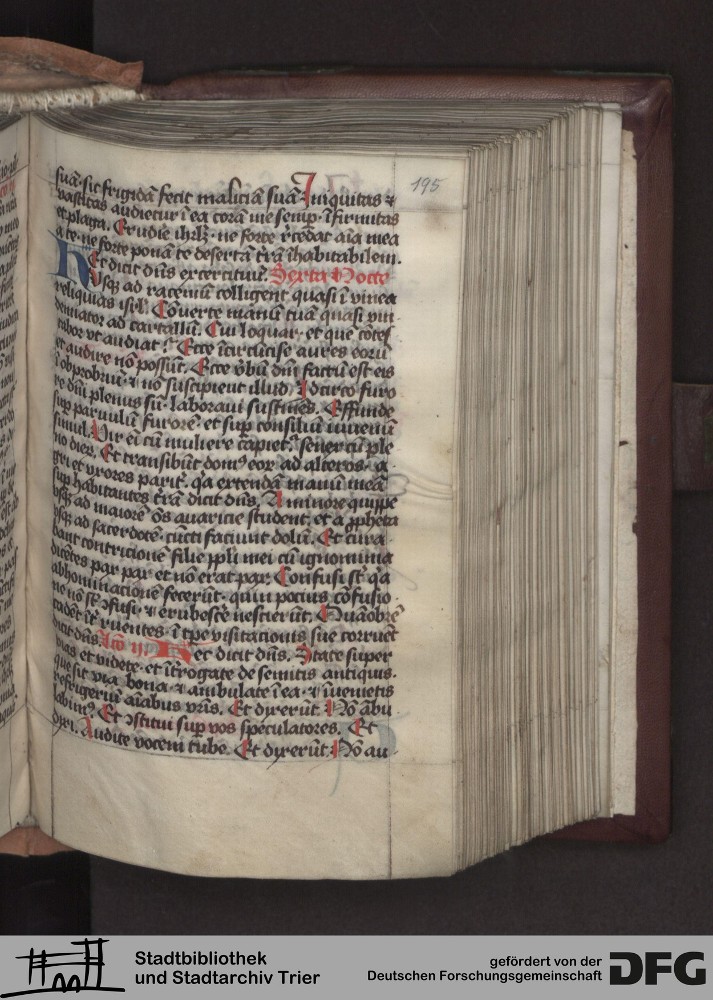 195
suā· sic frigidā fecit maliciā suā· Iniquitas ⁊
vastitas audietur ī ea corā me semp· īfirmitas
et plaga. Erudire ihrlꝫ· ne forte rͤcedat aīa mea
a te· ne forte ponā te desertā tr̄a īhabitabilem.
Hec dicit dn̄s exercituū. Sexta Nocte
Vsqꝫ ad racemū colligent quasi ī vinea
reliquias isrl̓. Cōuerte manū tuā quasi vin
demiator ad cartallū. Cui loquar· et quē cōtes
tabor vt audiat? Ecce īcircūcise aures eorū
et audire nō possūt. Ecce v̓bū dn̄i factū est eis
ī obprobriū· ⁊ nō suscipient illud. Idcirco furo
re dn̄i plenus sū· laboraui sustinēs. Effunde
suꝑ paruulū furorē· et suꝑ consiliū iuuenū
simul. Vir eī cū muliere capiet᷑· senex cū ple
no dieꝝ. Et transibūt dom⁹ eoꝝ ad alteros· a
gri et vxores parit᷑· q̄a extendā manū meā
suꝑ habitantes tr̄ā dicit dn̄s. A minore quippe
vsqꝫ ad maiorē oēs auaricie student· et a ꝓpheta
vsqꝫ ad sacerdotē· cūcti faciunt dolū. Et cura
bant contricionē filie ppl̓i mei cū ignominia
dicētes pax pax et nō erat pax. Confusi st̄ q̄a
abhominacionē fecerūt· quin pocius cōfusio
ne nō st̄ ↄfusi· ⁊ erubescē nescierūt. Quāobrē
cadēt īt̄ ruentes· ī tꝑe visitacionis sue corruēt
dicit dn̄s. Lc̄o ij. Hec dicit dn̄s. State super
vias et videte· et īt̄rogate de semitis antiquis·
que sit via bona· ⁊ ambulate ī ea· ⁊ īuenietis
refrigeriū aīabus vr̄is. Et dixerūt· Nō ābu
labim⁹. Et ↄstitui suꝑ vos speculatores. Et
dixi. Audite vocem tube. Et dixerūt· Nō au
Stadtbibliothek
und Stadtarchiv Trier
gefördert von der
Deutschen Forschungsgemeinschaft
DFG